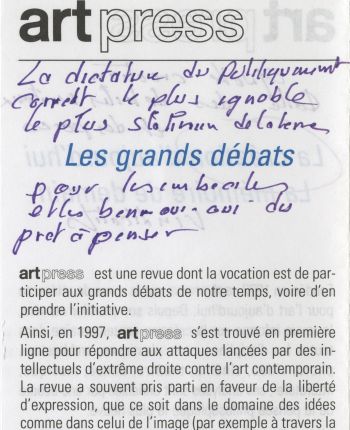 art press
La dictature du Politiquement
Correct le plus ignoble
le plus stalinien de la terre
Les grands débats
pour les imbeciles
et les béni-oui-oui du
pret à penser
artpress est une revue dont la vocation est de par-
ticiper aux grands débats de notre temps, voire d'en
prendre l'initiative.
Ainsi, en 1997, artpress s'est trouvé en première
ligne pour répondre aux attaques lancées par des in-
tellectuels d'extrême droite contre l'art contemporain.
La revue a souvent pris parti en faveur de la liberté
d'expression, que ce soit dans le domaine des idées
comme dans celui de l'image (par exemple à travers la